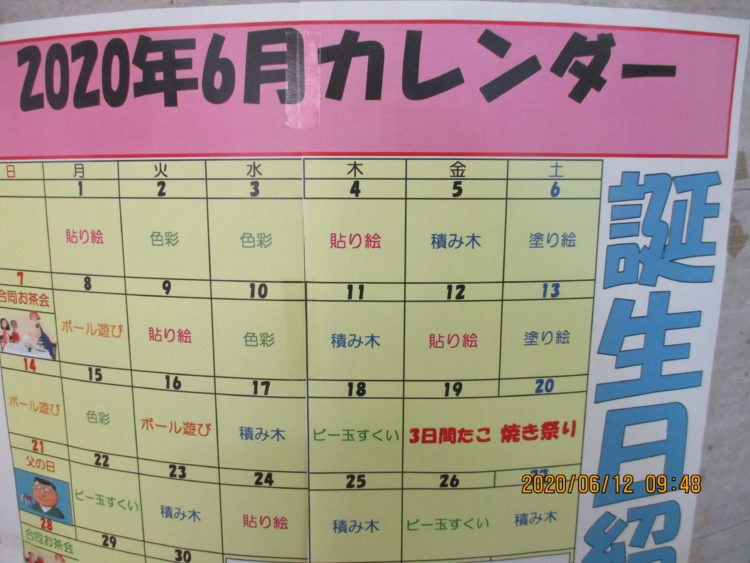 2020年6月カレンダー
日 月 火 水 木 金 土
1 2 3 4 5 6
貼り絵 色彩 色彩 貼り絵 積み木 塗り絵
7 8 9 10 11 12 13
合同お茶会 ボール遊び 貼り絵 色彩 積み木 貼り絵 塗り絵
14 15 16 17 18 19 20
ボール遊び 色彩 ボール遊び 積み木 ビー玉すくい 3日間たこ 焼き祭り
21 22 23 24 25 26 27
父の日 ビー玉すくい 積み木 貼り絵 積み木 ビー玉すくい 積み木
28 29 30
合同お茶会
誕生日紹
2020/06/12 09:48